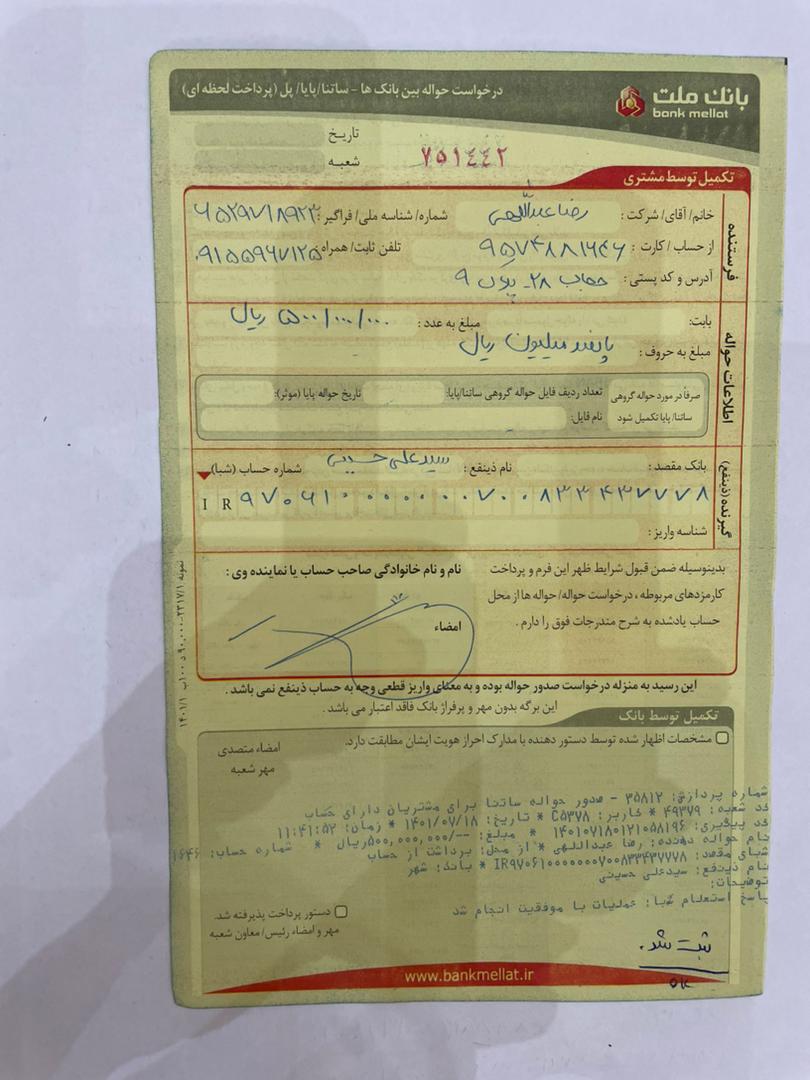 بانک ملت
bank mellat
درخواست حواله بین بانک ها - ساتنا/پایا/ پل (پرداخت لحظه ای)
تاریخ
شعبه
۷۵۱۴۴۲
تکمیل توسط مشتری
فرستنده
خانم/ آقای/ شرکت : رضا عبداللهی شماره/ شناسه ملی/ فراگیر :
از حساب / کارت : تلفن ثابت/ همراه: ۰۹۱۵۵۹۶۷۱۲۵
آدرس و کد پستی : حجاب ۲۸- پلاک ۹
اطلاعات حواله
بابت: مبلغ به عدد : ۵۰۰/۰۰۰/۰۰۰ ریال
مبلغ به حروف : پانصد میلیون ریال
صرفاً در مورد حواله گروهی ساتنا/ پایا تکمیل شود
تعداد ردیف فایل حواله گروهی ساتنا/پایا: تاریخ حواله پایا (موثر):
نام فایل:
گیرنده (ذینفع)
بانک مقصد : نام ذینفع : سید علی حسینی شماره حساب (شبا)
IR ۹۷۰۶۱۰۰۰۰۰۰۰۷۰۰۸۳۳۴۳۷۷۷۸
شناسه واریز :
بدینوسیله ضمن قبول شرایط ظهر این فرم و پرداخت
کارمزدهای مربوطه ، درخواست حواله/ حواله ها از محل
حساب یادشده به شرح مندرجات فوق را دارم .
نام و نام خانوادگی صاحب حساب یا نماینده وی :
امضاء
این رسید به منزله درخواست صدور حواله بوده و به معنای واریز قطعی وجه به حساب ذینفع نمی باشد .
این برگه بدون مهر و پرفراژ بانک فاقد اعتبار می باشد .
تکمیل توسط بانک
مشخصات اظهار شده توسط دستور دهنده با مدارک احراز هویت ایشان مطابقت دارد.
امضاء متصدی
مهر شعبه
شماره پردازش: ۳۵۸۱۲ - صدور حواله ساتنا برای مشتریان دارای حساب
کد شعبه: ۴۹۳۷۹ * کاربر: C۵۳۷۸ * تاریخ: ۱۴۰۱/۰۷/۱۸ * زمان: ۱۱:۴۱:۵۲
کد پیگیری: ۱۴۰۱۰۷۱۸۰۱۲۱۰۵۸۱۹۶ * مبلغ: --/۵۰۰,۰۰۰,۰۰۰ریال * شماره حساب:
نام حواله دهنده: رضا عبداللهی * از محل: برداشت از حساب
شبای مقصد: IR۹۷۰۶۱۰۰۰۰۰۰۰۷۰۰۸۳۳۴۳۷۷۷۸ * بانک: شهر
نام ذینفع: سیدعلی حسینی
توضیحات:
پاسخ استعلام شبا: عملیات با موفقیت انجام شد
دستور پرداخت پذیرفته شد.
مهر و امضاء رئیس/ معاون شعبه
ثبت شد.
www.bankmellat.ir